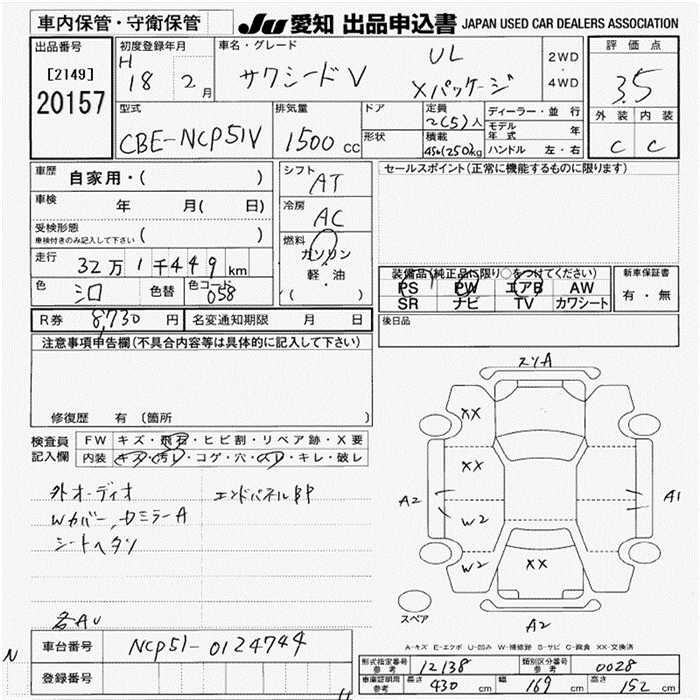 車内保管・守衛保管
JU 愛知 出品申込書 JAPAN USED CAR DEALERS ASSOCIATION
出品番号
[2149]
20157
初度登録年月
H 18 2月
車名・グレード
サクシードV
UL
Xパッケージ
2WD
・
4WD
評価点
3.5
外装 内装
C C
型式
CBE-NCP51V
排気量
1500 cc
ドア
形状
定員
2(5)人
積載
450(250)kg
ディーラー・並行
モデル年式 年
ハンドル 左・右
車歴 自家用・( )
車検 年 月( 日)
受検形態
車検付きのみ記入して下さい ( )
走行 32万1千449km
色 シロ 色替 色コード 058
シフト AT
冷房 AC
燃料
ガソリン
軽・油
( )
セールスポイント(正常に機能するものに限ります)
装備品(純正品に限り○をつけてください)
PS PW エアB AW
SR ナビ TV カワシート
新車保証書
有・無
R券 8,730円 名変通知期限 月 日
後日品
注意事項申告欄(不具合内容等は具体的に記入して下さい)
修復歴 有 (箇所 )
検査員記入欄
FW キズ・飛石・ヒビ割・リペア跡・X要
内装 キズ・汚れ・コゲ・穴・スレ・キレ・破レ
外オーディオ
エンドパネルBP
Wカバー,
シートヘタリ
各AU
車台番号 NCP51-0124744
登録番号
N
XX
XX
W2
W2
XX
A2
A1
A2
スペア
A-キズ E-エクボ U-凹み W-補修跡 S-サビ C-腐食 XX-交換済
形式指定番号 参考 12138 類別区分番号 参考 0028
車庫証明用 参考 長さ 430 cm 幅 169 cm 高さ 152 cm